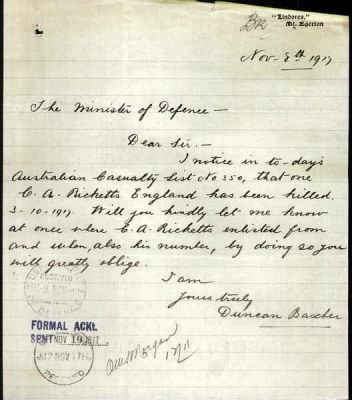 "Lindores,"
Mt. Egerton
Nov. 8th 1917
The Minister of Defence —
Dear Sir. —
I notice in to-days
Australian Casualty List No 350, that one
C. A. Ricketts England has been killed.
3-10-1917. Will you kindly let me know
at once where C. A. Ricketts enlisted from
and when, also his number, by doing so you
will greatly oblige.
I am
Yours truly
Duncan Baxter
FORMAL ACKT.
SENT NOV 19 1917
12/11